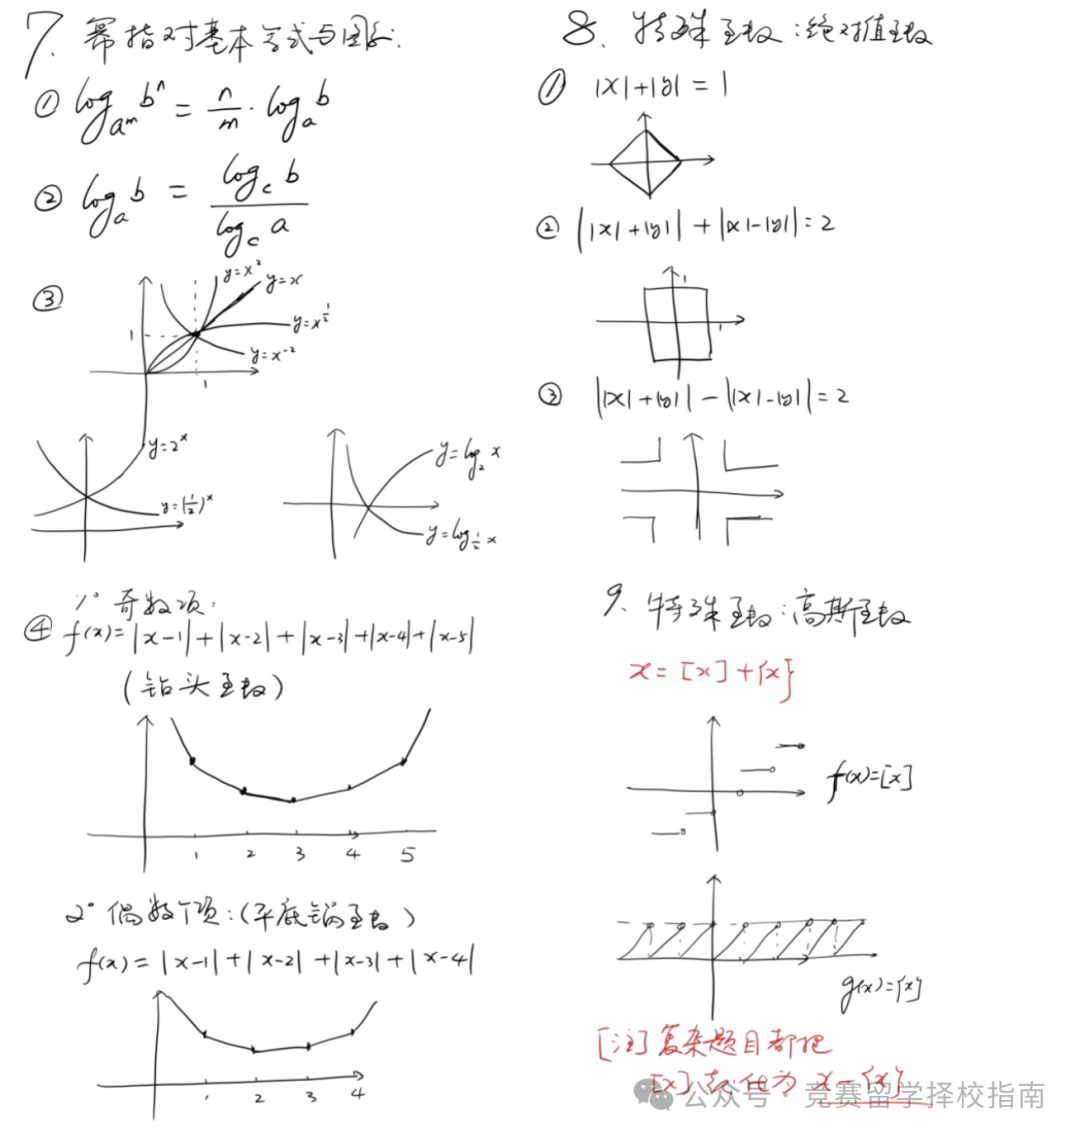 7. 幂指对基本公式与图象.
① log_{a^m} b^n = \frac{n}{m} · log_a b
② log_a b = \frac{log_c b}{log_c a}
③
y=x²
y=x
y=x^{\frac{1}{2}}
y=x^{-2}
1
1
y=2^x
y=(\frac{1}{2})^x
y=log_2 x
y=log_{\frac{1}{2}} x
1° 奇数项:
④ f(x)=|x-1|+|x-2|+|x-3|+|x-4|+|x-5|
(钻头函数)
1 2 3 4 5
2° 偶数个项:(平底锅函数)
f(x)=|x-1|+|x-2|+|x-3|+|x-4|
1 2 3 4
8. 特殊函数:绝对值函数
① |x|+|y|=1
② ||x|+|y||+||x|-|y||=2
1
1
③ ||x|+|y||-||x|-|y||=2
9. 特殊函数:高斯函数
x=[x]+{x}
f(x)=[x]
g(x)={x}
[注]复杂题目都把
[x]替代为 x-{x}
公众号·竞赛留学择校指南